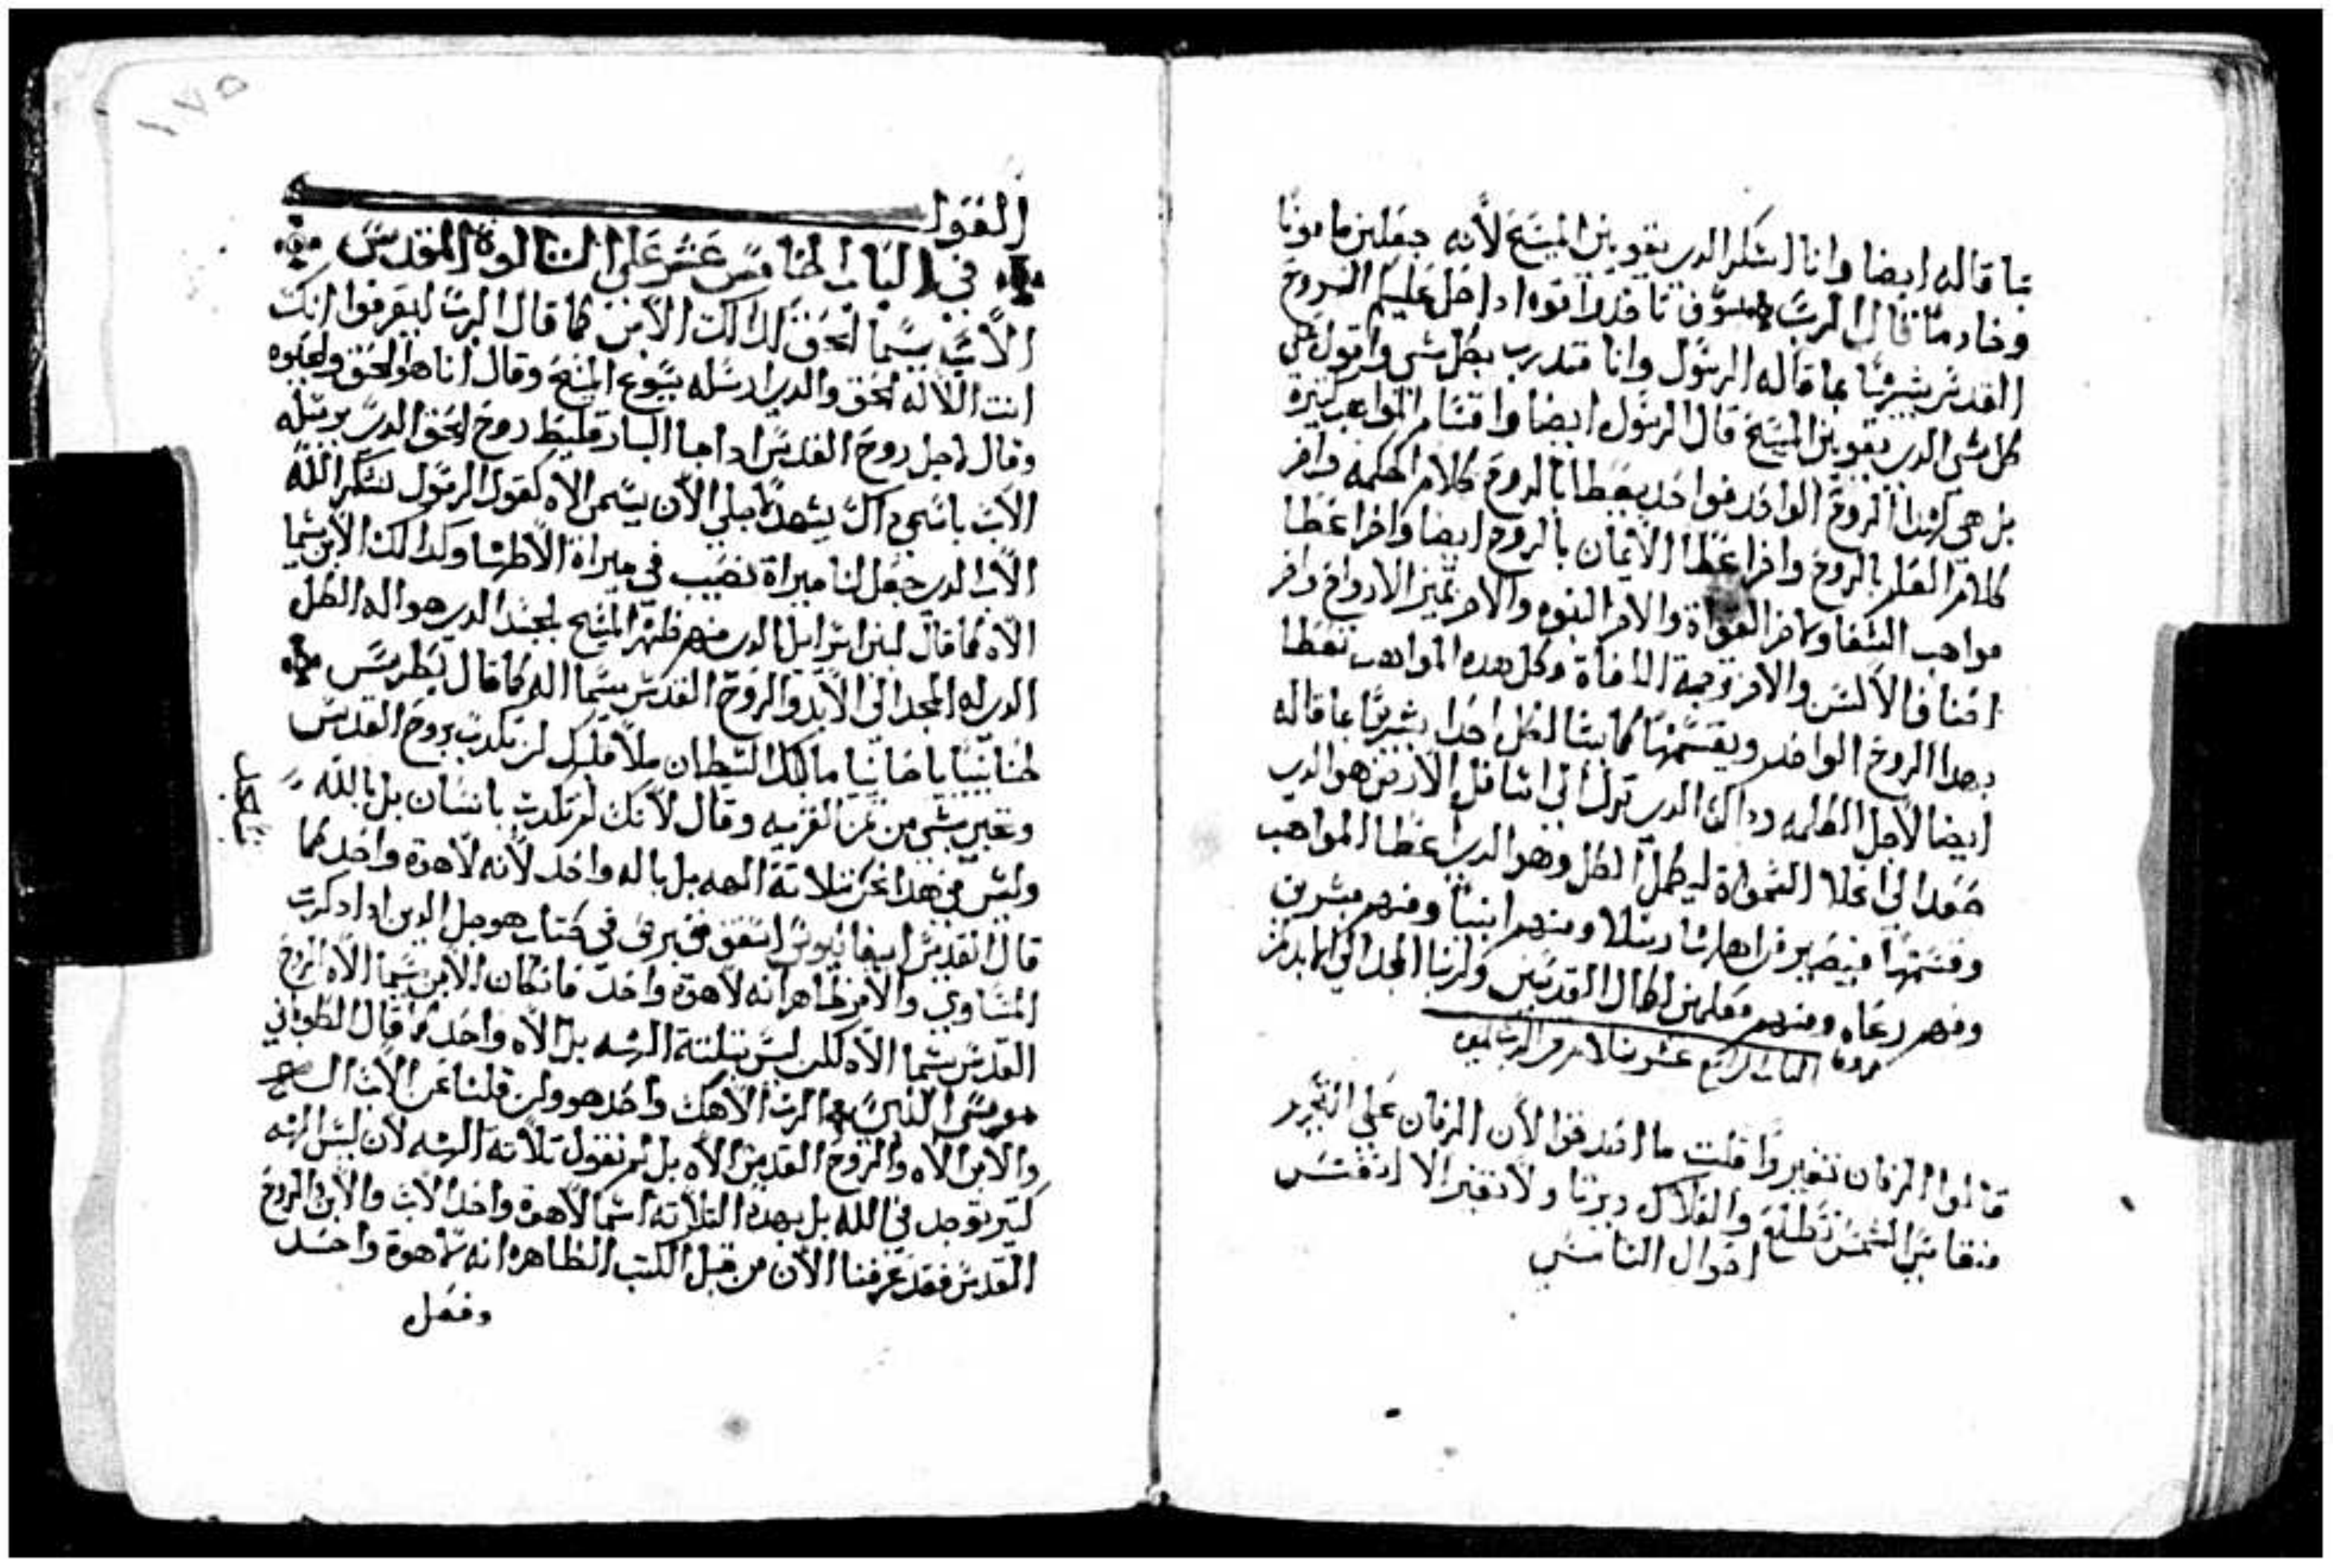 بما قاله ايضا وانا اشكر الدي يقويني المسيح لأنه جعلني مامونا
وخادما قال الرب سوف تاخدوا قوه ادا حل عليكم الروح
القدس بشريا بما قاله الرسول وانا متدرب بكل شي واقول علي
كل شي الدي يقويني المسيح قال الرسول ايضا واقسام المواهب كتيرة
بل هي لهدا الروح الواحد فواحد يعطا بالروح كلام الحكمه واخر
كلام العلم بالروح واخر اعطا الأيمان بالروح ايضا واخر اعطا
مواهب الشفا واخر القواة والاخر النبوه والأخر تميز الارواح واخر
اصناف الألسن والاخر ترجمة اللغاة وكل هده المواهب تعطا
بهدا الروح الواحد ويقسمها كما يشا لكل احدا بشريا بما قاله
ايضا لأجل الكلمه وداك الدي نزل الي اسافل الأرض هو الدي
صعد الي اعلا السموات ليكمل الكل وهو الدي اعطا المواهب
وقسمها فيصير قراها رسلا ومنهم انبيا ومنهم مبشرين
ومنهم رعاه ومنهم معلمين لكمال القديسين ولربنا المجد الي الابد امين
الباب الرابع عشر بسلام من الرب امين
قالوا الزمان تغير وا قلت ما اصدقوا لأن الزمان علي التجريد
منقا سي الشمس تطلع والفلاك ديرنا ولا تغير الا انفس
احوال الناس
القول
في الباب الخامس عشر علي التالوة المقدس
الأب يسما الحق كدالك الأبن كما قال الرب ليعرفوا انك
انت الالاه الحق والدي ارسله يسوع المسيح وقال انا هو الحق والحيوه
وقال لاجل روح القدس ادا جا البارقليط روح الحق الدي يرسله
الأب باسمي داك يشهد قبلي الأن يسمى الأه كقول الرسول نشكر الله
الأب الدي جعل لنا ميراة نصيب في ميراة الأطهار وكدالك الأبن يسما
الأه كما قال لبني اسراييل الدي منهم ظهر المسيح بالجسد الدي هو اله الكل
الدي له المجد الي الأبد والروح القدس يسما اله كما قال بطرس
لحنانيا يا حنانيا ما بالك الشيطان ملأ قلبك لن تكدب بروح القدس
وتخبي شي من تمن القريه وقال لأنك لم تكدب بانسان بل بالله
وليس في هدا نحن نتلاتة الهه بل باله واحد لأنه لاهوة واحد كما
قال القديس ابيفانيوس اسقف قبرص في كتاب هوجل الدين ادا دكرت
المساوي والأمر ظاهر انه لاهوة واحد فانكان الأبن يسما الأه الروح
القدس يسما الأه لكن ليس بتلتة الهه بل الأه واحد كما قال الطوباني
موسى النبي الرب الأهك واحد هو ولن قلنا عن الأب الاه
والابن الأه والروح القدس الأه بل لم نقول تلاتة الهه لأن ليس الهه
كتير توجد في الله بل بهده التلاته اسما لاهوة واحد الأب والأبن والروح
القدس فقد عرفنا الأن من قبل الكتب الظاهره انه لاهوة واحد
وفصل